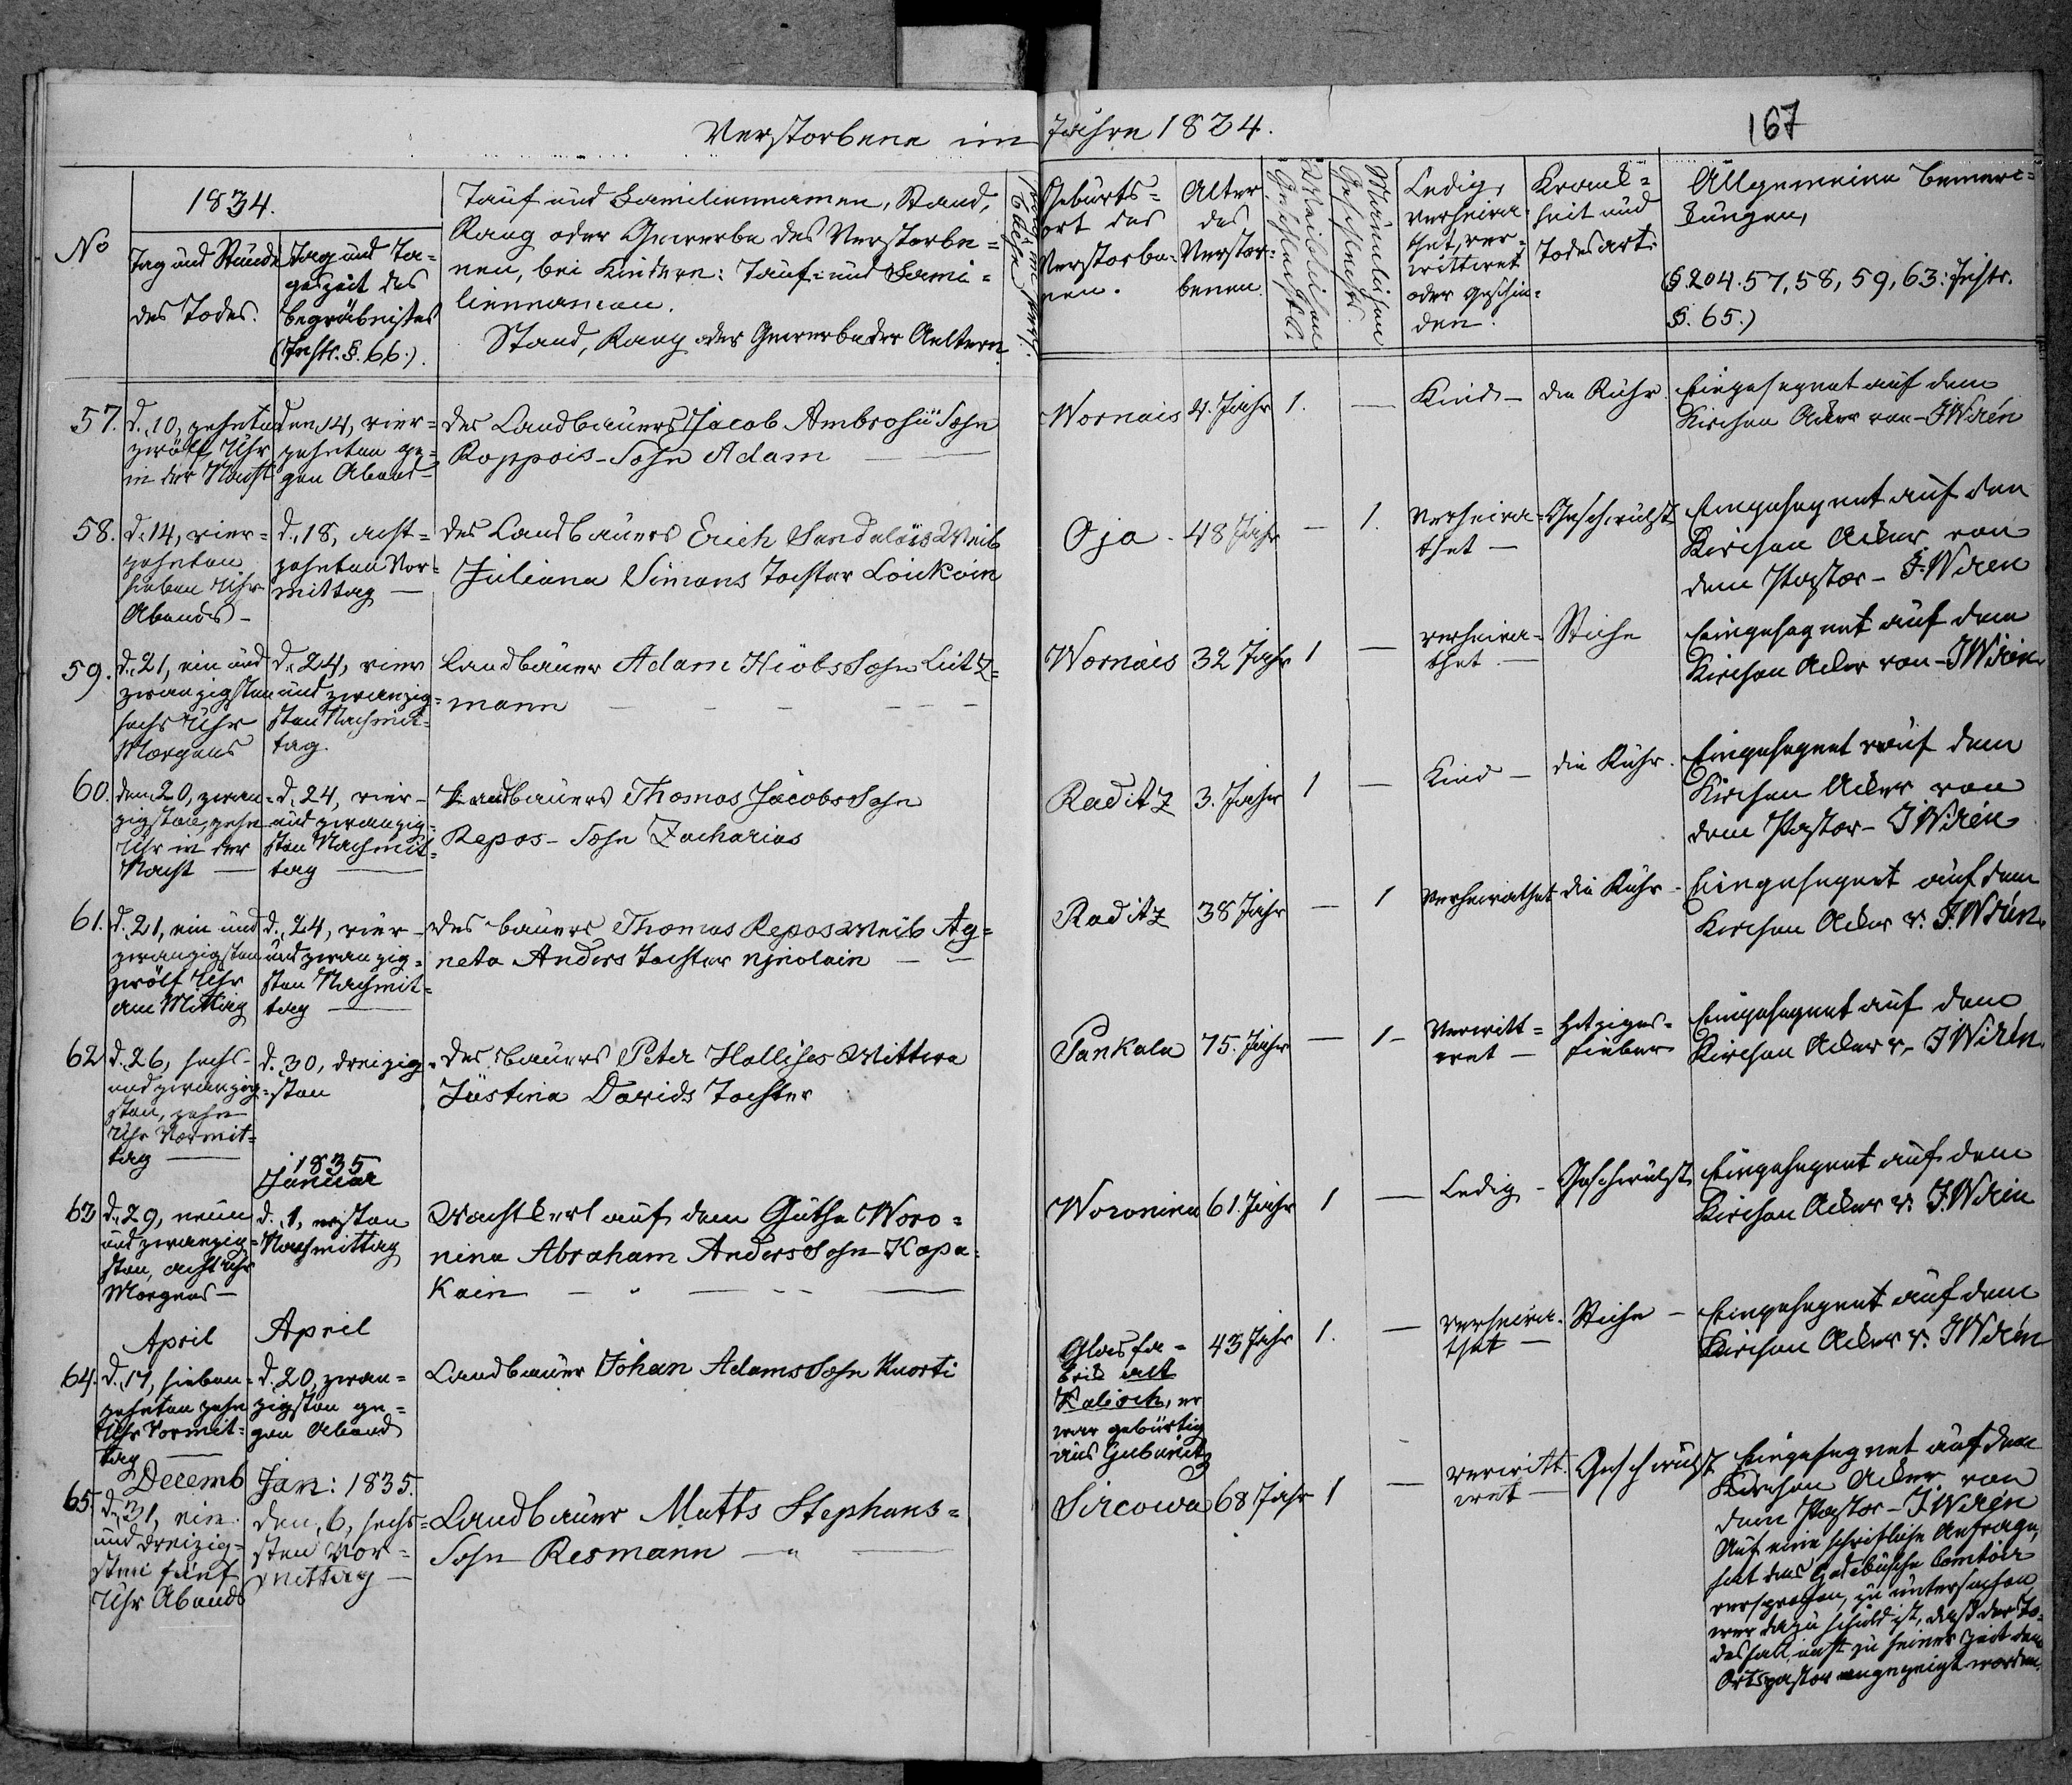 Verstorbene im Jahre 1834.
167
No
1834.
Tag und Stunde
des Todes.
Tag und Ta=
geszeit des
Begräbnißes
(Instr. §. 66.).
Tauf und Familiennamen, Stand,
Rang oder Gewerbe des Verstorbe=
nen, bei Kindern: Tauf= und Fami=
liennamen.
Stand, Rang oder Gewerbe der Aeltern.
Geburts=
ort des
Verstorbe=
nen.
Alter
des
Verstor=
benen.
Männlichen
Geschlechts.
Weiblichen
Geschlechts.
Ledig,
verheira=
thet, ver=
wittwet
oder geschie=
den.
Krank=
heit und
Todesart.
Allgemeine Bemerk=
kungen,
(§. 204. 57, 58, 59, 63. Instr.
§. 65.)
57.
d. 10, zehnten
zwölf Uhr
in der Nacht
den 14, vier=
zehnten ge=
gen Abend
des Landbauers Jacob Ambrosii Sohn
Roppois - Sohn Adam
Wornais
4. Jahr
1.
—
Kind —
die Ruhr.
Eingesegnet auf dem
Kirchen Acker von - J Wirén
58.
d. 14, vier=
zehnten
sieben Uhr
Abends -
d. 18, acht=
zehnten Vor=
mittag —
des Landbauers Erich Sandalais Weib
Juliana Simons Tochter Loikkain
Oja.
48 Jahr
—
1.
Verheira=
thet —
Geschwulst
Eingesegnet auf dem
Kirchen Acker von
dem Pastor - J. Wirén
59.
d. 21, ein und
zwanzigsten
sechs Uhr
Morgens
d. 24, vier
und zwanzig=
sten Nachmit=
tag.
Landbauer Adam Hiobs Sohn Lütz=
mann
Wornais
32 Jahr
1
—
verheira=
thet —
Stiche
Eingesegnet auf dem
Kirchen Acker von - J Wirén
60.
den 20, zwan=
zigsten, zehn
Uhr in der
Nacht —
d. 24, vier-
und zwanzig=
sten Nachmit=
tag —
Landbauers Thomas Jacobs Sohn
Repos - Sohn Zacharias
Raditz
3. Jahr
1
—
Kind —
die Ruhr.
Eingesegnet auf dem
Kirchen Acker von
dem Pastor - J Wirén
61.
d. 21, ein und
zwanzigsten
zwölf Uhr
am Mittag
d. 24, vier-
und zwanzig=
sten Nachmit=
tag —
des Bauers Thomas Repos Weib Ag=
neta Anders Tochter
Raditz
38 Jahr
—
1
Verheirathet
die Ruhr -
Eingesegnet auf dem
Kirchen Acker v. J. Wirén
62
d. 26, sechs-
und zwanzig=
sten, zehn
Uhr Vormit=
tag —
d. 30, dreizig=
sten
des Bauers Peter Hallises Wittwe
Justina Davids Tochter
Pankala
75. Jahr
—
1 -
Verwitt=
wet —
hitziges=
fieber
Eingesegnet auf dem
Kirchen Acker v. J Wirén
1835
Januar
63
d. 29, neun
und zwanzig=
sten, acht Uhr
Morgens —
d. 1, ersten
Nachmittag
Wachtkerl auf dem Guthe Woro=
nina Abraham Anders Sohn Kapa=
kain
Woronina
61. Jahr
1
—
Ledig -
Geschwulst
Eingesegnet auf dem
Kirchen Acker v. J. Wirén
April
April
64.
d. 17, sieben=
zehnten zehn
Uhr Vormit=
tag —
d. 20, zwan=
zigsten ge=
gen Abend
Landbauer Johan Adams Sohn Kuorti
Glasfa=
brik alt
Kalisch, er
war gebürtig
aus Gubanitz
43 Jahr
1.
—
verheira=
thet —
Stiche -
Eingesegnet auf dem
Kirchen Acker v. J Wirén
Decemb
Jan: 1835.
65.
d. 31, ein
und dreizig=
sten fünf
Uhr Abends
den 6, sechs=
sten Vor=
mittag —
Landbauer Matts Stephans=
Sohn Resmann
Sircowa
68 Jahr
1
—
verwitt=
wet —
Geschwulst
Eingesegnet auf dem
Kirchen Acker von
dem Pastor - J Wirén
Auf eine schriftliche Anfrage,
hat das Comtoir
versprochen, zu untersuchen,
wer dazu schuld ist, daß der To=
desfall nicht zu seiner Zeit dem
Ortspastor angezeigt worden.